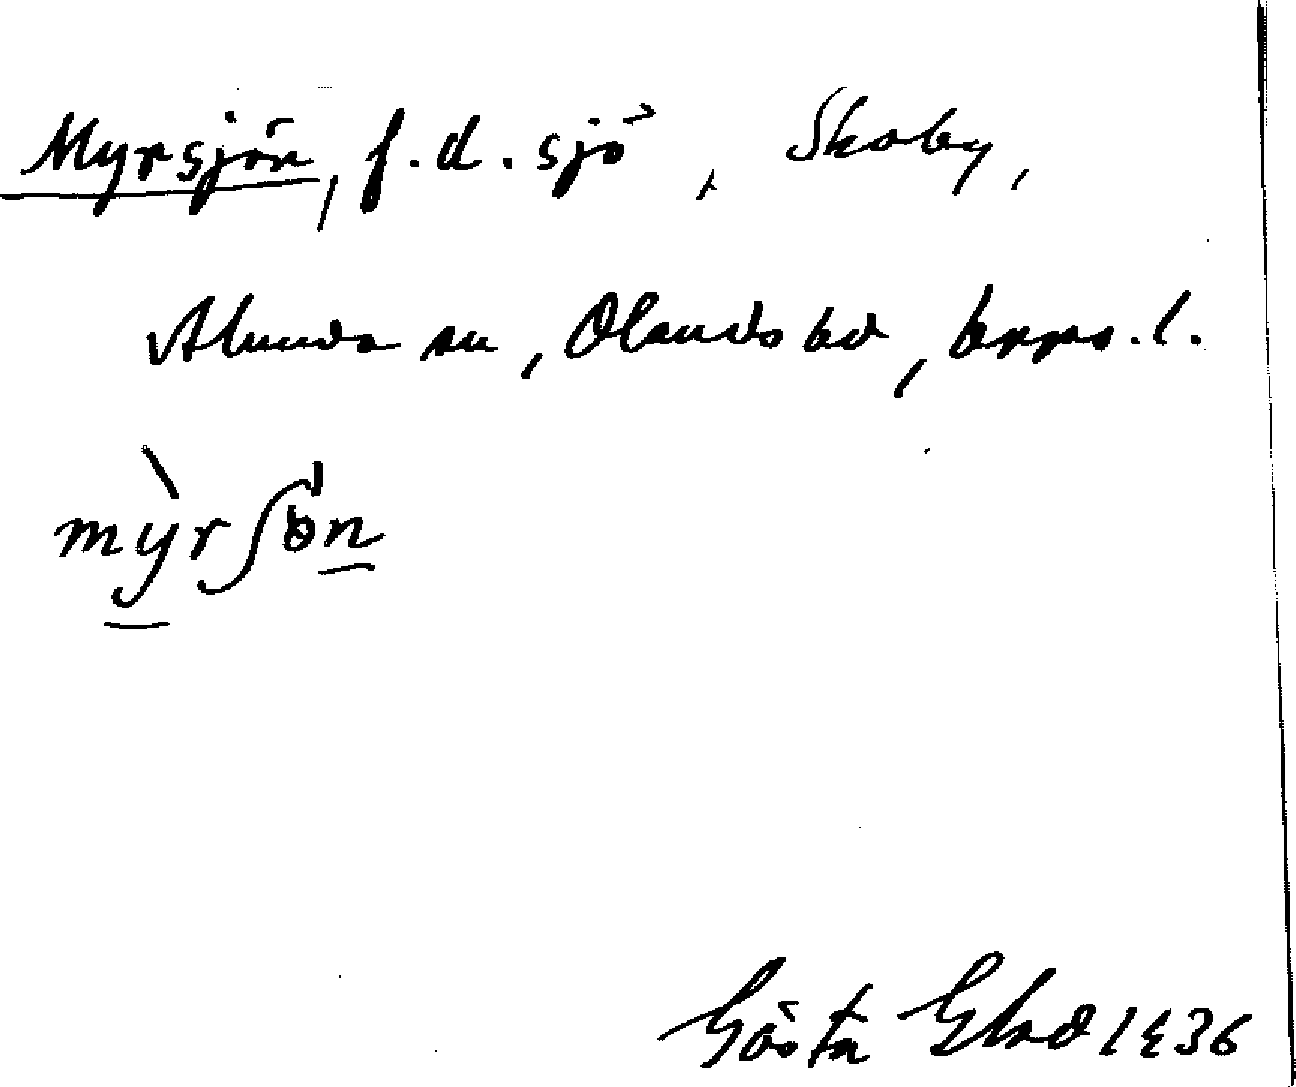 Myrsjön, f.d. sjö, Skoby,
Alunda sn, Olands hd, Upps. l.
mỳrʃɵ̀n
Gösta Glad 1936